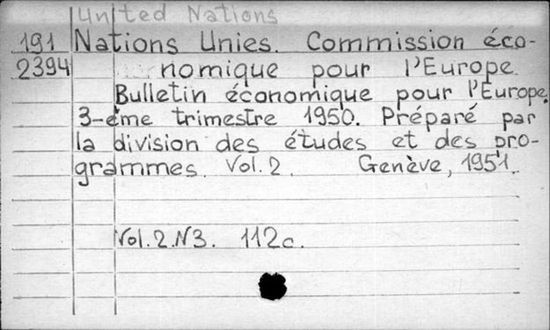 United Nations
191 Nations Unies. Commission éco-
2394 nomique pour l'Europe.
Bulletin économique pour l'Europe.
3-ème trimestre 1950. Préparé par
la division des études et des pro-
grammes. Vol. 2. Genève, 1951.
Vol. 2. N3. 112c.